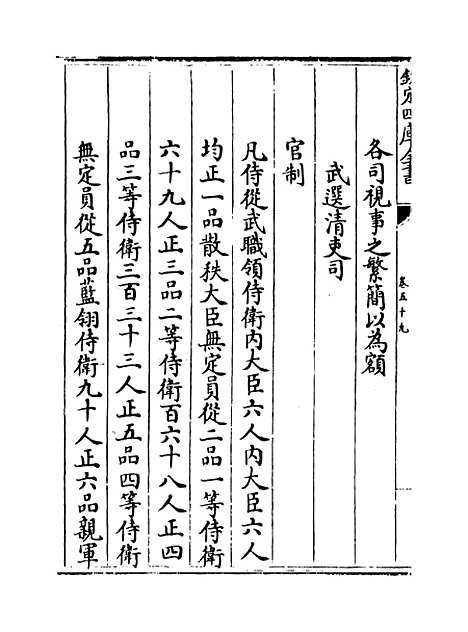 欽定四庫全書
卷五十九
各司視事之繁簡以為額
武選清吏司
官制
凡侍從武職領侍衛內大臣六人內大臣六人
均正一品散秩大臣無定員從二品一等侍衛
六十九人正三品二等侍衛百六十八人正四
品三等侍衛三百三十三人正五品四等侍衛
無定員從五品藍翎侍衛九十人正六品親軍